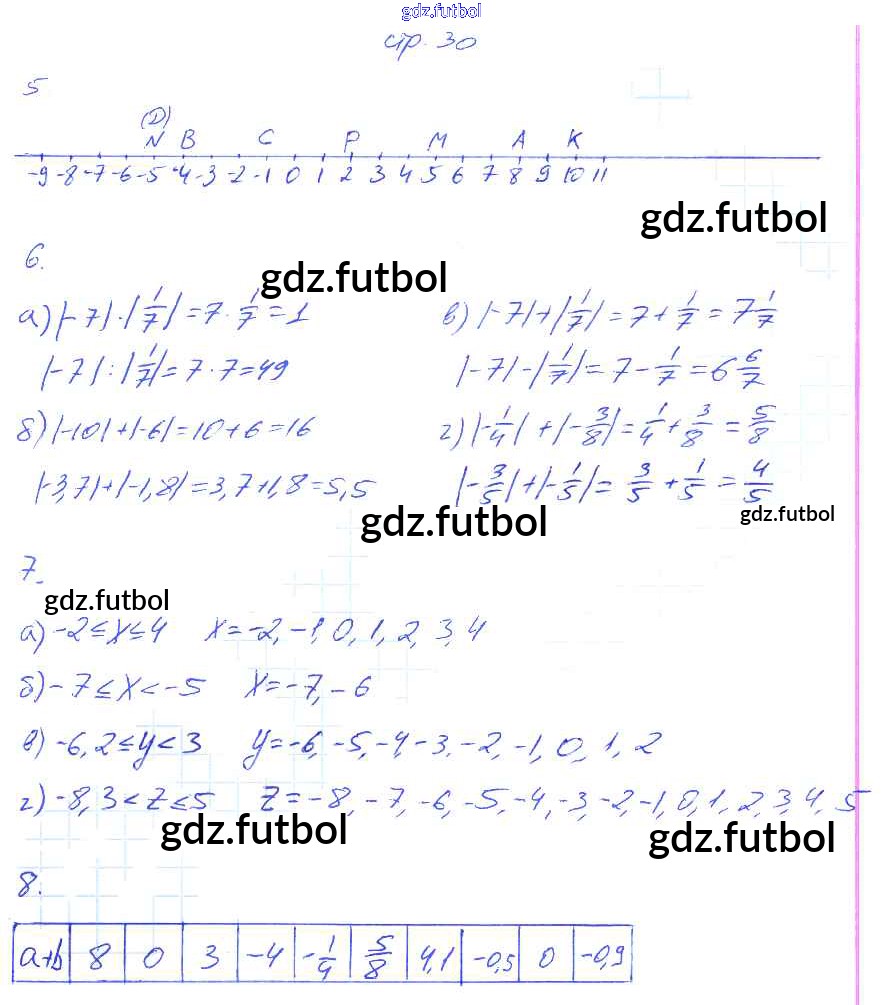 gdz.futbol
стр. 30
5
(D)
N B C P M A K
-9 -8 -7 -6 -5 -4 -3 -2 -1 0 1 2 3 4 5 6 7 8 9 10 11
gdz.futbol
6.
gdz.futbol
а) |-7|·|1/7| = 7·1/7 = 1
в) |-7|+|1/7| = 7+1/7 = 7 1/7
|-7|:|1/7| = 7·7=49
|-7|-|1/7| = 7-1/7 = 6 6/7
б) |-10|+|-6|=10+6=16
г) |-1/4|+|-3/8|=1/4+3/8=5/8
|-3,7|+|-1,8|=3,7+1,8=5,5
|-3/5|+|-1/5|=3/5+1/5=4/5
gdz.futbol
gdz.futbol
7.
gdz.futbol
а) -2≤x≤4 x=-2,-1,0,1,2,3,4
б) -7≤x<-5 x=-7,-6
в) -6,2≤y<3 y=-6,-5,-4,-3,-2,-1,0,1,2
г) -8,3<z≤5 z=-8,-7,-6,-5,-4,-3,-2,-1,0,1,2,3,4,5
gdz.futbol
gdz.futbol
8.
a+b 8 0 3 -4 -1/4 5/8 4,1 -0,5 0 -0,9